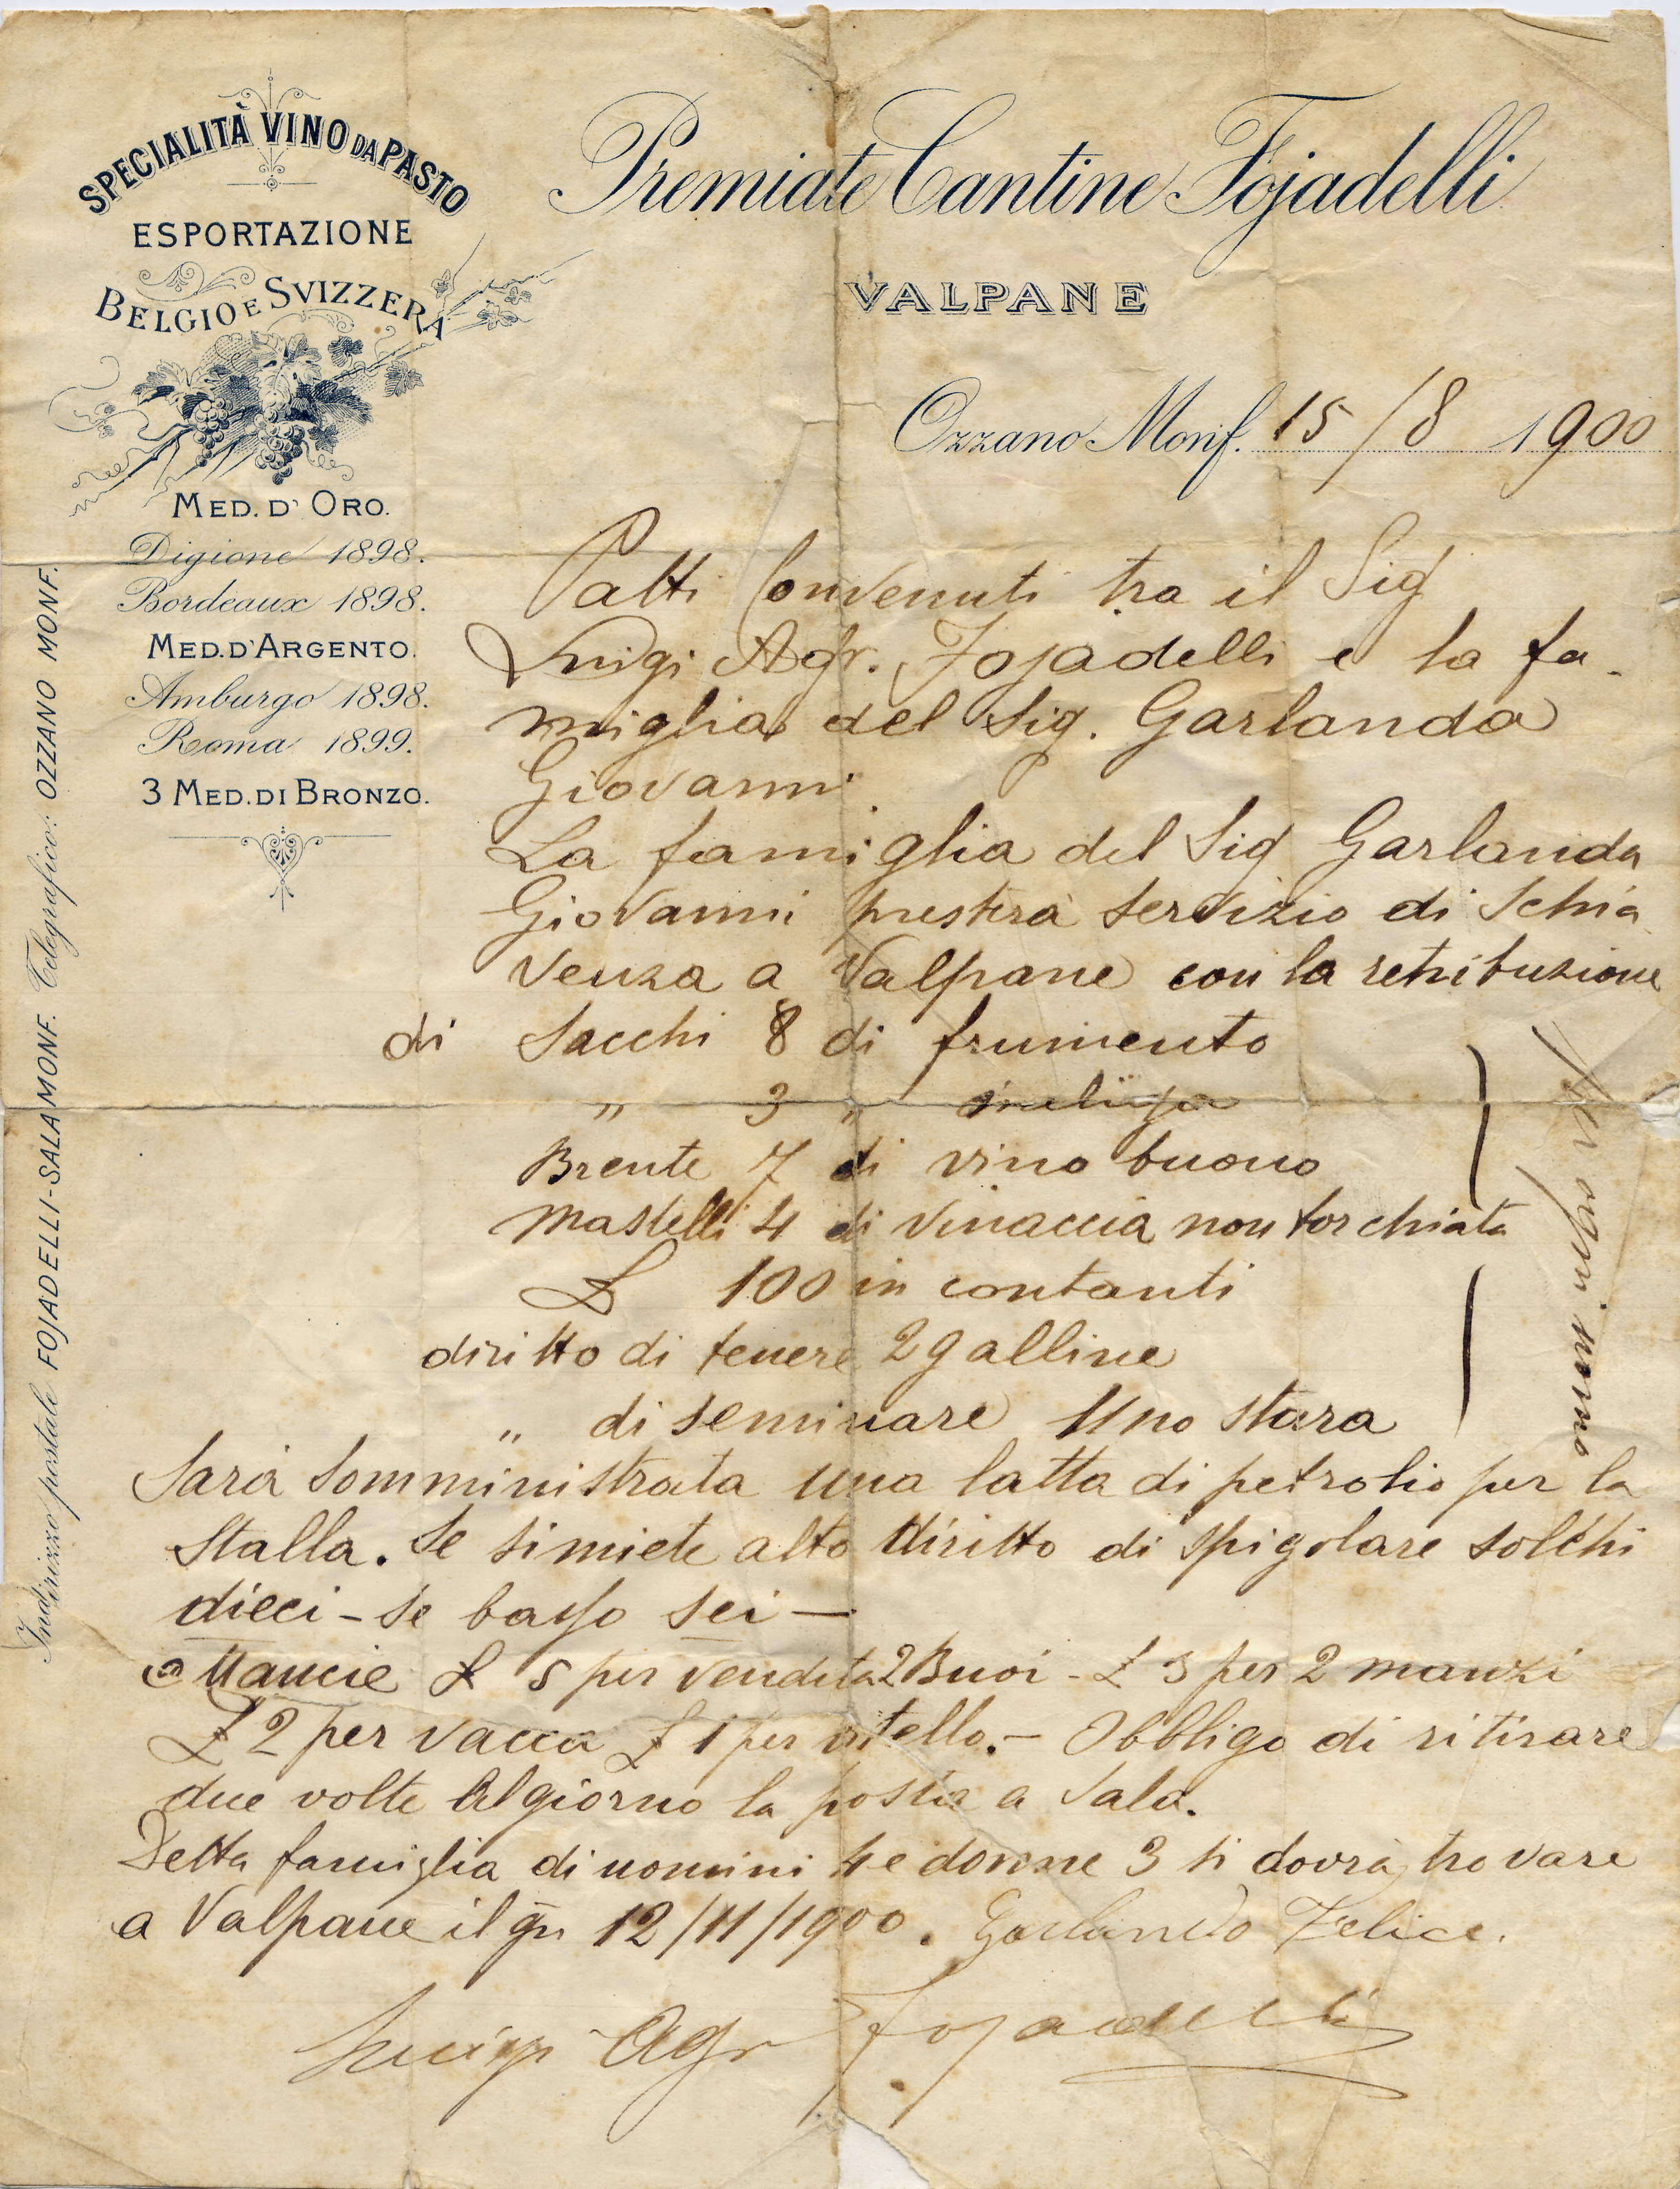 SPECIALITÀ VINO DA PASTO
ESPORTAZIONE
BELGIO E SVIZZERA
MED. D' ORO.
Digione 1898.
Bordeaux 1898.
MED. D'ARGENTO.
Amburgo 1898.
Roma 1899.
3 MED. DI BRONZO.
Indirizzo postale FOJADELLI-SALA MONF. Telegrafico: OZZANO MONF.
Premiate Cantine Fojadelli
VALPANE
Ozzano Monf. 15/8 1900
Patti Convenuti tra il Sig
Luigi Agr. Fojadelli e la fa-
miglia del Sig. Garlanda
Giovanni
La famiglia del Sig Garlanda
Giovanni presterà servizio di Schia
venza a Valpane con la retribuzione
di Sacchi 8 di frumento
" 3 " meliga
Brente 7 di vino buono
Mastelli 4 di vinaccia non torchiata
£ 100 in contanti
diritto di tenere 2 galline
" di seminare uno stara
per ogni uomo
Sarà somministrata una latta di petrolio per la
Stalla. Se si miete alto diritto di spigolare solchi
dieci - se basso sei -
Mancie £ 5 per vendita 2 Buoi - £ 3 per 2 manzi
£ 2 per vacca £ 1 per vitello. - Obbligo di ritirare
due volte al giorno la posta a Sala.
Detta famiglia di uomini 4 e donne 3 si dovrà trovare
a Valpane il gn 12/11/1900. Garlando Felice.
Luigi Agr Fojadelli